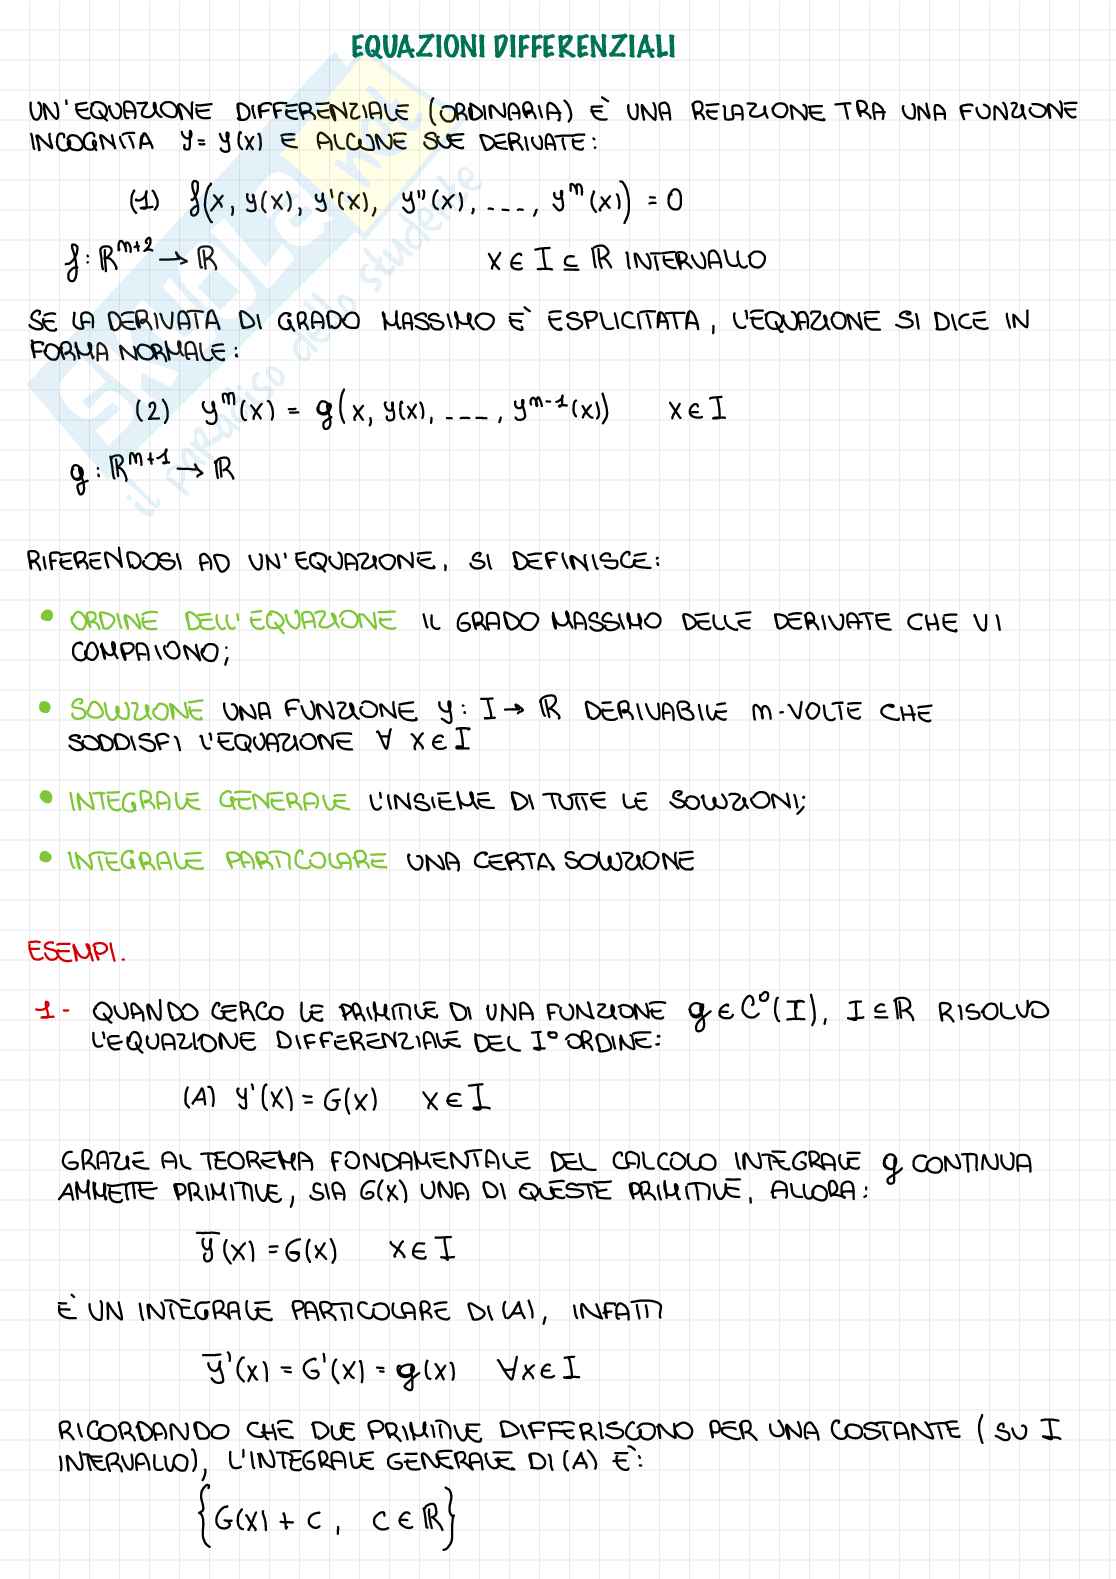 EQUAZIONI DIFFERENZIALI
UN'EQUAZIONE DIFFERENZIALE (ORDINARIA) È UNA RELAZIONE TRA UNA FUNZIONE
INCOGNITA y = y(x) E ALCUNE SUE DERIVATE:
(1) f(x, y(x), y'(x), y''(x), ..., yⁿ(x)) = 0
f: ℝⁿ⁺² → ℝ x ∈ I ⊆ ℝ INTERVALLO
SE LA DERIVATA DI GRADO MASSIMO È ESPLICITATA, L'EQUAZIONE SI DICE IN
FORMA NORMALE:
(2) yⁿ(x) = g(x, y(x), ---, yⁿ⁻¹(x)) x ∈ I
g: ℝⁿ⁺¹ → ℝ
RIFERENDOSI AD UN'EQUAZIONE, SI DEFINISCE:
• ORDINE DELL'EQUAZIONE IL GRADO MASSIMO DELLE DERIVATE CHE VI
COMPAIONO;
• SOLUZIONE UNA FUNZIONE y: I → ℝ DERIVABILE n-VOLTE CHE
SODDISFI L'EQUAZIONE ∀ x ∈ I
• INTEGRALE GENERALE L'INSIEME DI TUTTE LE SOLUZIONI;
• INTEGRALE PARTICOLARE UNA CERTA SOLUZIONE
ESEMPI.
1- QUANDO CERCO LE PRIMITIVE DI UNA FUNZIONE g ∈ C⁰(I), I ⊆ ℝ RISOLVO
L'EQUAZIONE DIFFERENZIALE DEL I° ORDINE:
(A) y'(x) = G(x) x ∈ I
GRAZIE AL TEOREMA FONDAMENTALE DEL CALCOLO INTEGRALE g CONTINUA
AMMETTE PRIMITIVE, SIA G(x) UNA DI QUESTE PRIMITIVE, ALLORA:
y̅(x) = G(x) x ∈ I
È UN INTEGRALE PARTICOLARE DI (A), INFATTI
y̅'(x) = G'(x) = g(x) ∀x ∈ I
RICORDANDO CHE DUE PRIMITIVE DIFFERISCONO PER UNA COSTANTE (SU I
INTERVALLO), L'INTEGRALE GENERALE DI (A) È:
{G(x) + c, c ∈ ℝ}
SKUOLA.net
il paradiso dello studente